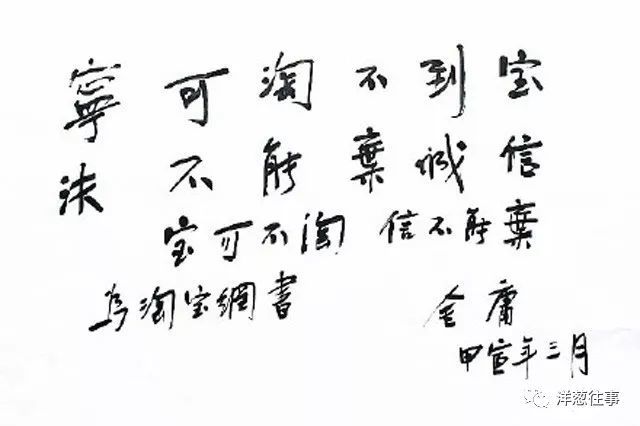 寧可淘不到宝
決不能棄诚信
宝可不淘 信不能棄
為淘宝網書 金庸
甲宣年三月
洋葱往事